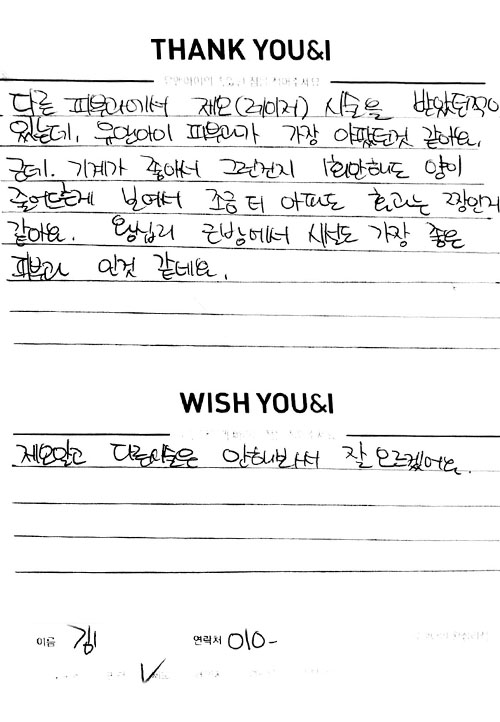 THANK YOU&I
다른 피부과에서 제모(레이저) 시술을 받았던적이
있는데, 유앤아이 피부과가 가장 아팠던것 같아요.
근데. 기계가 좋아서 그런건지 1회만해도 양이
줄어든게 보여서 조금 더 아파도 효과는 짱인거
같아요. 왕십리 근방에서 시설도 가장 좋은
피부과 인것 같네요.
WISH YOU&I
제모말고 다른시술은 안해봐서 잘 모르겠어요.
이름 김 연락처 010-